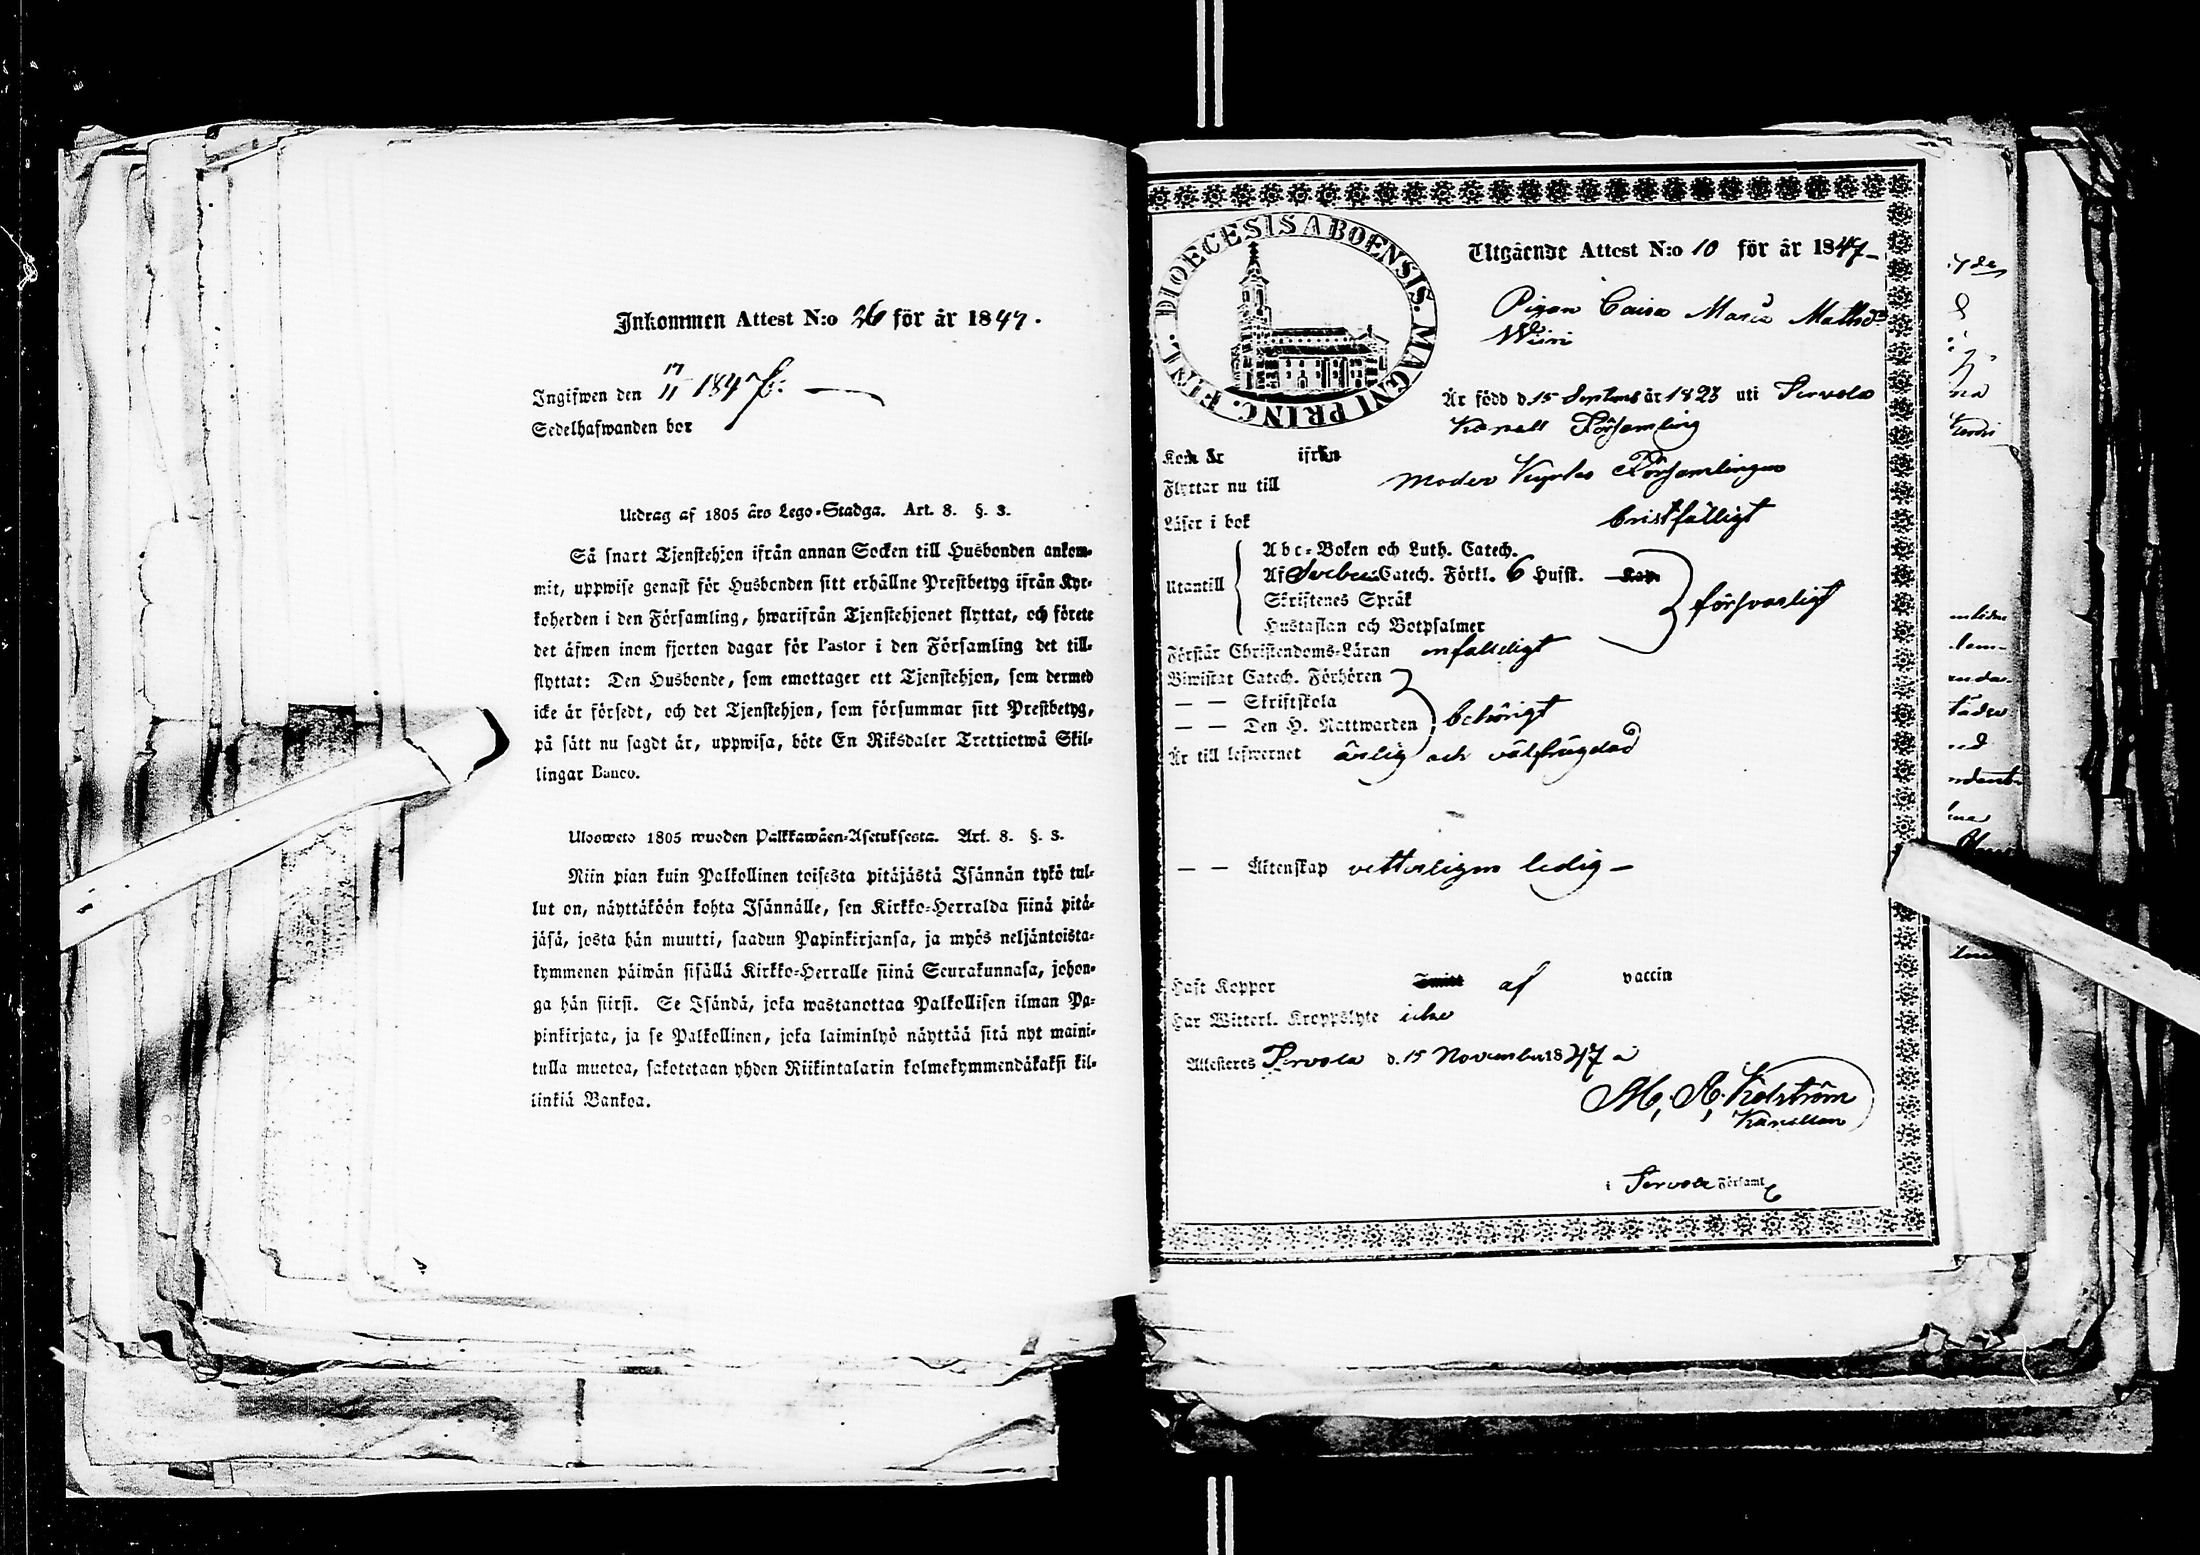 Inkommen Attest N:o 26 för år 1847.
Ingifwen den 17/11 1847
Sedelhafwanden bor
Utdrag af 1805 års Lego-Stadga. Art. 8. §. 3.
Så snart Tjenstehjon ifrån annan Socken till Husbonden ankom-
mit, uppwise genast för Husbonden sitt erhållne Prestbetyg ifrån Kyr-
koherden i den Församling, hwarifrån Tjenstehjonet flyttat, och förete
det äfwen inom fjorton dagar för Pastor i den Församling det till-
flyttat: Den Husbonde, som emottager ett Tjenstehjon, som dermed
icke är försedt, och det Tjenstehjon, som försummar sitt Prestbetyg,
på sätt nu sagdt är, uppwisa, böte En Riksdaler Trettiotwå Skil-
lingar Banco.
Ulosweto 1805 wuoden Palkkawäen-Asetuksesta. Art. 8. §. 3.
Niin pian kuin Palkollinen toisesta pitäjästä Isännän tykö tul-
lut on, näyttäköön kohta Isännälle, sen Kirkko-Herralda siinä pitä-
jäsä, josta hän muutti, saadun Papinkirjansa, ja myös neljäntoista-
kymmenen päiwän sisällä Kirkko-Herralle siinä Seurakunnasa, johon-
ga hän siirsi. Se Isändä, joka wastanottaa Palkollisen ilman Pa-
pinkirjata, ja se Palkollinen, joka laiminlyö näyttää sitä nyt maini-
tulla muotoa, sakotetaan yhden Riikintalarin kolmekymmendäkaksi kil-
linkiä Bankoa.
DIOECESIS ABOENSIS. MAGNI PRINC. FINL.
Utgående Attest N:o 10 för år 1847
Pigan Caisa Maria Mathsdr
Wiiri
Är född d. 15 Septembr år 1823 uti Servola
Kapell Församling
Kom år ifrån
Flyttar nu till Moder Kyrko Församlingen
Läser i bok bristfälligt
Utantill
Abc-Boken och Luth. Catech.
Af Svebelii Catech. Förkl. 6 Hufst. Kap.
Skriftenes Språk
Hustaflan och Botpsalmer
försvarligt
Förstår Christendoms-Läran enfaldigt
Biwistat Catech. Förhören
— — Skriftskola
— — Den H. Nattwarden
behörigt
Är till lefwernet ärlig och välfrägdad
— — Äktenskap vetterligen ledig —
Haft Koppor Smitt af vaccin
Har Witterl. Kroppslyte icke
Attesteres Servola d. 15 November 1847
M. A. Kolström
Kapellan
i Servola Förşaml